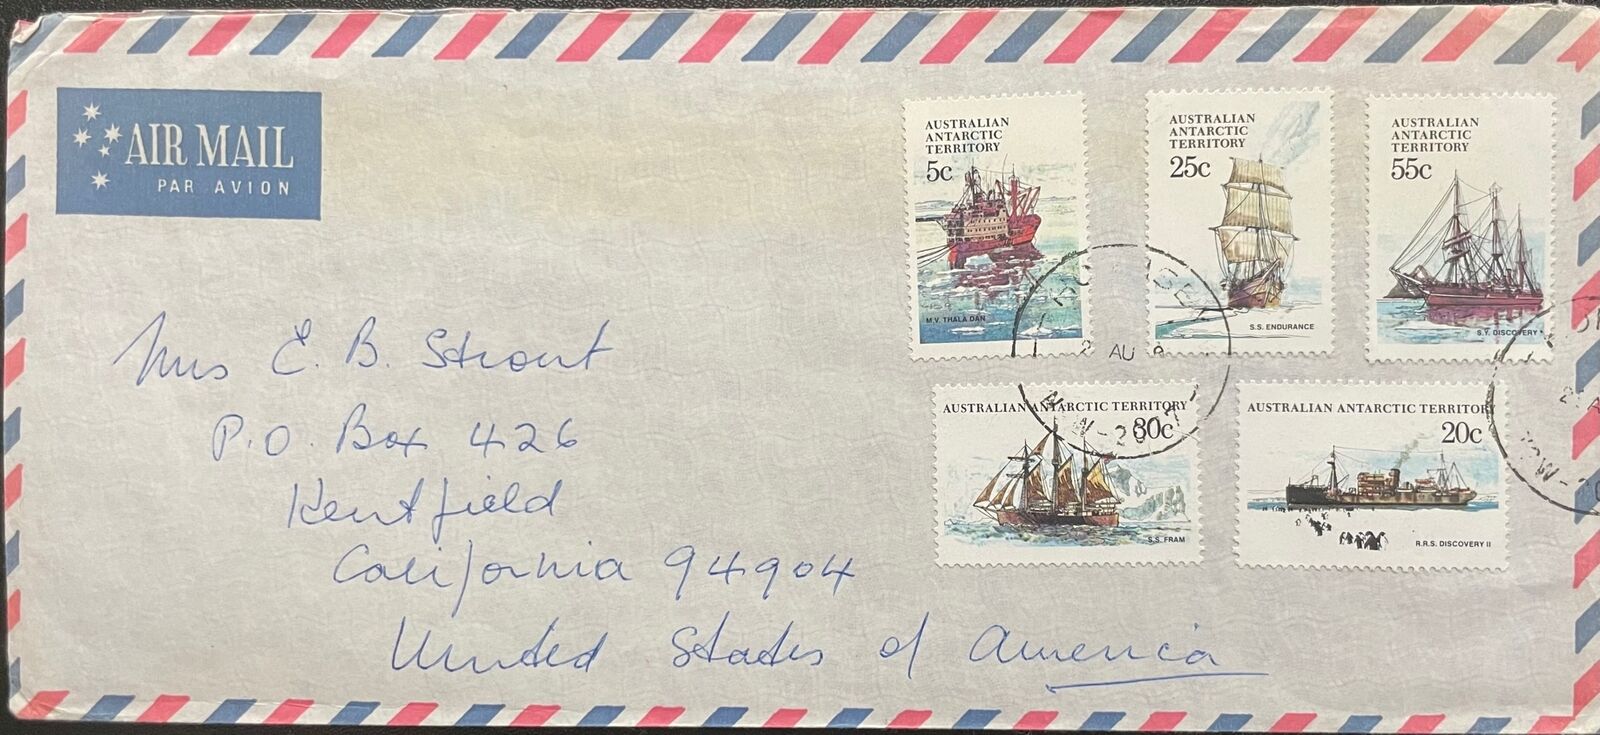 AIR MAIL
PAR AVION
AUSTRALIAN
ANTARCTIC
TERRITORY
5c
M.V. THALA DAN
AUSTRALIAN
ANTARCTIC
TERRITORY
25c
S.S. ENDURANCE
AUSTRALIAN
ANTARCTIC
TERRITORY
55c
S.Y. DISCOVERY
AUSTRALIAN ANTARCTIC TERRITORY
30c
S.S. FRAM
AUSTRALIAN ANTARCTIC TERRITORY
20c
R.R.S. DISCOVERY II
2 AU
Mrs E. B. Strout
P.O. Box 426
Kentfield
California 94904
United States of America